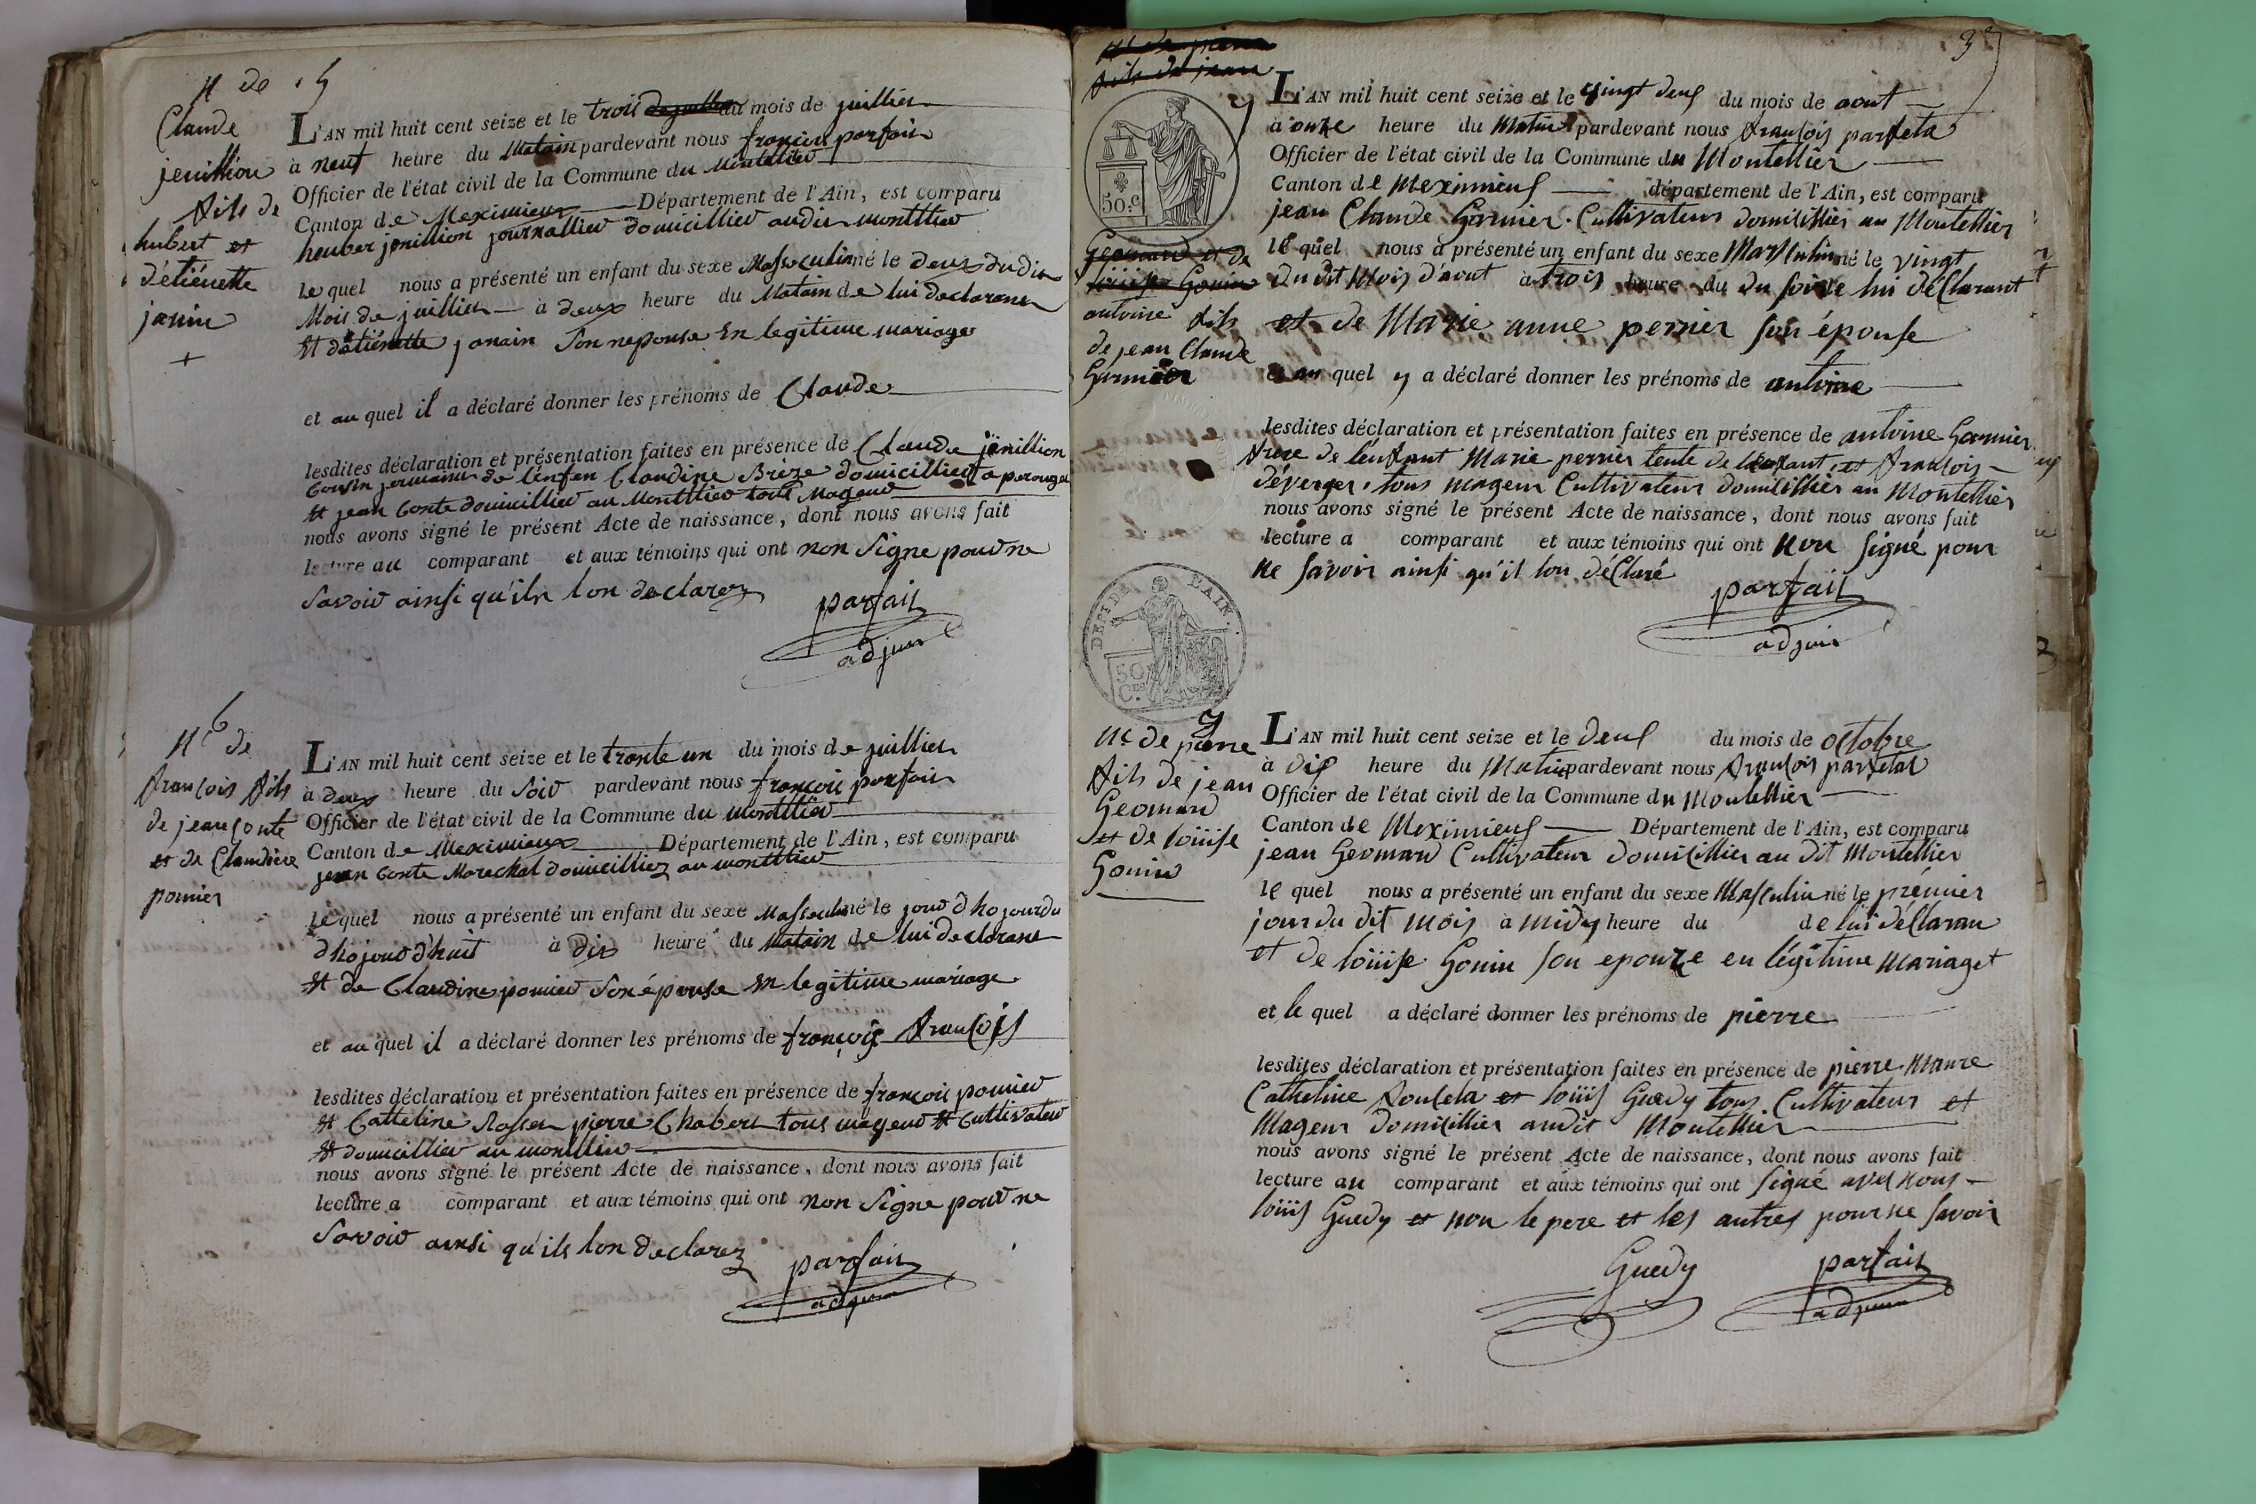 N de 5
Claude
jenillion
fils de
hubert et
d'étiénette
janin
+
L'AN mil huit cent seize et le trois du mois de juillier
à neuf heure du Matain pardevant nous françois parfait
Officier de l'état civil de la Commune du Montillier
Canton de Meximieux Département de l'Ain, est comparu
heuber jenillion journallier domicillier audit montillier
le quel nous a présenté un enfant du sexe Masseculin né le deux dudit
Mois de juillier à deux heure du Matain de lui declarant
Et détiénette janain Son nepouse En legitime mariage
et au quel il a déclaré donner les prénoms de Claude
lesdites déclaration et présentation faites en présence de Claude jenillion
Cousin jermain de lenfen Claudine Brèze domicilliers a perouge
Et jean Conte domicillier au Montillier tous Mageur
nous avons signé le présent Acte de naissance, dont nous avons fait
lecture au comparant et aux témoins qui ont non Signe pour ne
Savoir ainsi qu'ils lon declarez
parfait
adjoint
N 6 de
françois fils
de jean Conte
et de Claudine
pomier
L'AN mil huit cent seize et le trante un du mois de juillier
à deux heure du Soir pardevant nous françois parfait
Officier de l'état civil de la Commune du montillier
Canton de Meximieux Département de l'Ain, est comparu
jean Conte Marechal domicilliez au montillier
le quel nous a présenté un enfant du sexe Masseculin né le jour d'hojourdu
d'hojourd'huit à dix heure du Matain de lui declarant
Et de Claudine pomier Son épouse En legitime mariage
et au quel il a déclaré donner les prénoms de françois françois
lesdites déclaration et présentation faites en présence de françois pomier
Et Catteline pierre Chaber tous mageur Et Cultivateur
Et domicillier au montillier
nous avons signé le présent Acte de naissance, dont nous avons fait
lecture a comparant et aux témoins qui ont non Signe pour ne
Savoir ainsi qu'ils lon declarez
parfait
adjoint
3
Nt de pierre
fils de jean
7
50.c
Geomard et de
loüise Gonin
antoine fils
de jean Claude
Garnier
L'AN mil huit cent seize et le vingt deux du mois de aout
à onze heure du Matin pardevant nous françois parfeta
Officier de l'état civil de la Commune du Montellier
Canton de Meximieux département de l'Ain, est comparu
jean Claude Garnier Cultivateur domicillier au Montellier
le quel nous a présenté un enfant du sexe Masculin né le vingt
du dit Mois d'aout à trois heure du du soir de lui déClarant
et de Marie anne perrier son épouse
et au quel y a déclaré donner les prénoms de antoine
lesdites déclaration et présentation faites en présence de antoine Garnier
frere de l'enfant Marie perrier tente de l'enfant et françois
d'éverger, tous mageur Cultivateur domicillier au Montellier
nous avons signé le présent Acte de naissance, dont nous avons fait
lecture a comparant et aux témoins qui ont non signé pour
ne savoir ainsi qu'il lon déClaré
parfait
adjoint
DEPT DE L'AIN.
50
Ces.
7
Nt de pierre
fils de jean
Geomard
et de loüise
Gonin
L'AN mil huit cent seize et le deux du mois de octobre
à dix heure du Matin pardevant nous françois parfetat
Officier de l'état civil de la Commune du Montellier
Canton de Meximieux Département de l'Ain, est comparu
jean Geomard Cultivateur domicillier au dit Montellier
le quel nous a présenté un enfant du sexe Masculin né le prémier
jour du dit mois à midy heure du de lui déClaran
et de loüise Gonin son epouze en légitime Mariaget
et le quel a déclaré donner les prénoms de pierre
lesdites déclaration et présentation faites en présence de pierre Maure
Catheline et loüis Guedy tous Cultivateur et
Mageur domicillier audit Montellier
nous avons signé le présent Acte de naissance, dont nous avons fait
lecture au comparant et aux témoins qui ont signé avec nous
loüis Guedy et non le pere et les autres pour ne savoir
Guedy
parfait
adjoint